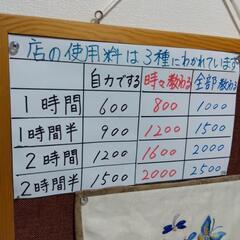 店の使用料は3種にわかれています
自力でする 時々教わる 全部教わる
1時間 600 800 1000
1時間半 900 1200 1500
2時間 1200 1600 2000
2時間半 1500 2000 2500